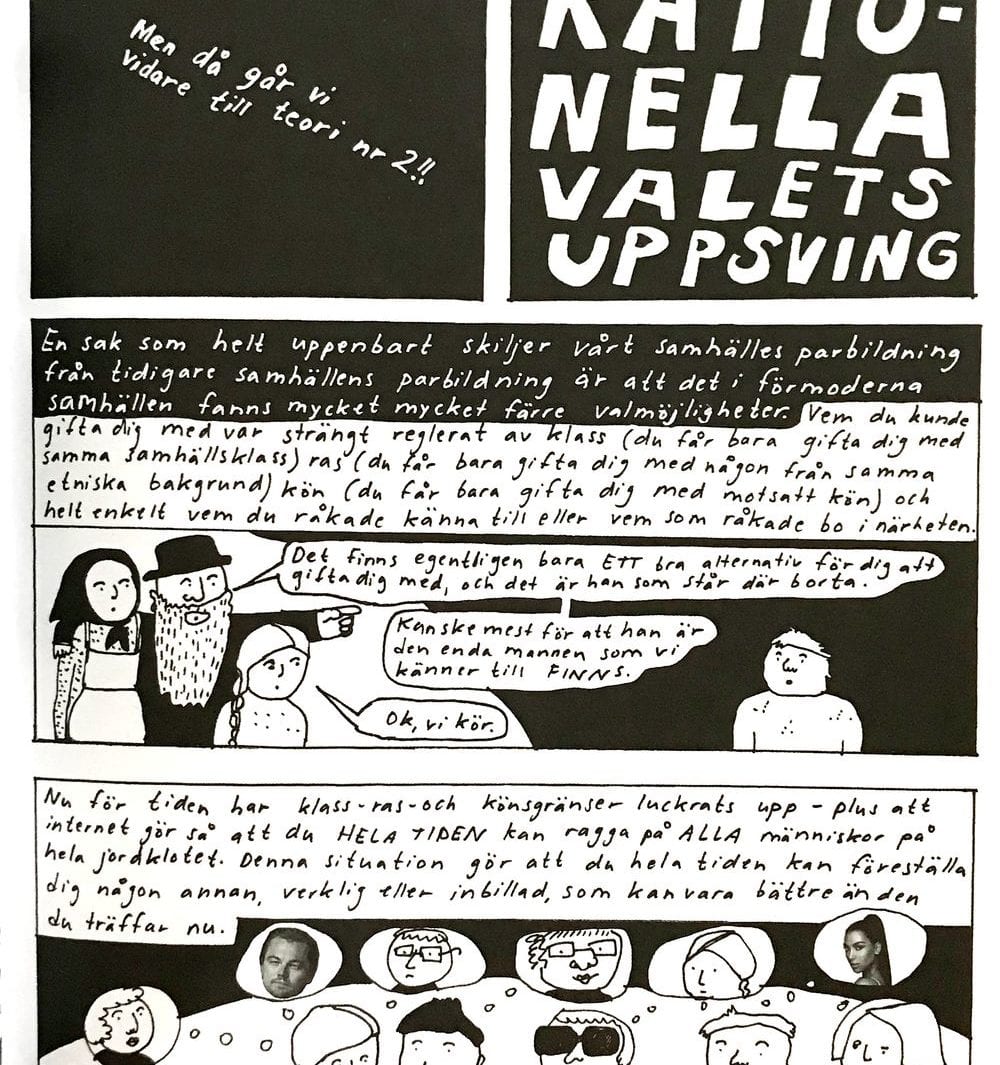 Men då går vi
vidare till teori nr 2!!
RATIO-
NELLA
VALETS
UPPSVING
En sak som helt uppenbart skiljer vårt samhälles parbildning
från tidigare samhällens parbildning är att det i förmoderna
samhällen fanns mycket mycket färre valmöjligheter. Vem du kunde
gifta dig med var strängt reglerat av klass (du får bara gifta dig med
samma samhällsklass) ras (du får bara gifta dig med någon från samma
etniska bakgrund) kön (du får bara gifta dig med motsatt kön) och
helt enkelt vem du råkade känna till eller vem som råkade bo i närheten.
Det finns egentligen bara ETT bra alternativ för dig att
gifta dig med, och det är han som står där borta.
Kanske mest för att han är
den enda mannen som vi
känner till FINNS.
Ok, vi kör.
Nu för tiden har klass-ras-och könsgränser luckrats upp - plus att
internet gör så att du HELA TIDEN kan ragga på ALLA människor på
hela jordklotet. Denna situation gör att du hela tiden kan föreställa
dig någon annan, verklig eller inbillad, som kan vara bättre än den
du träffar nu.